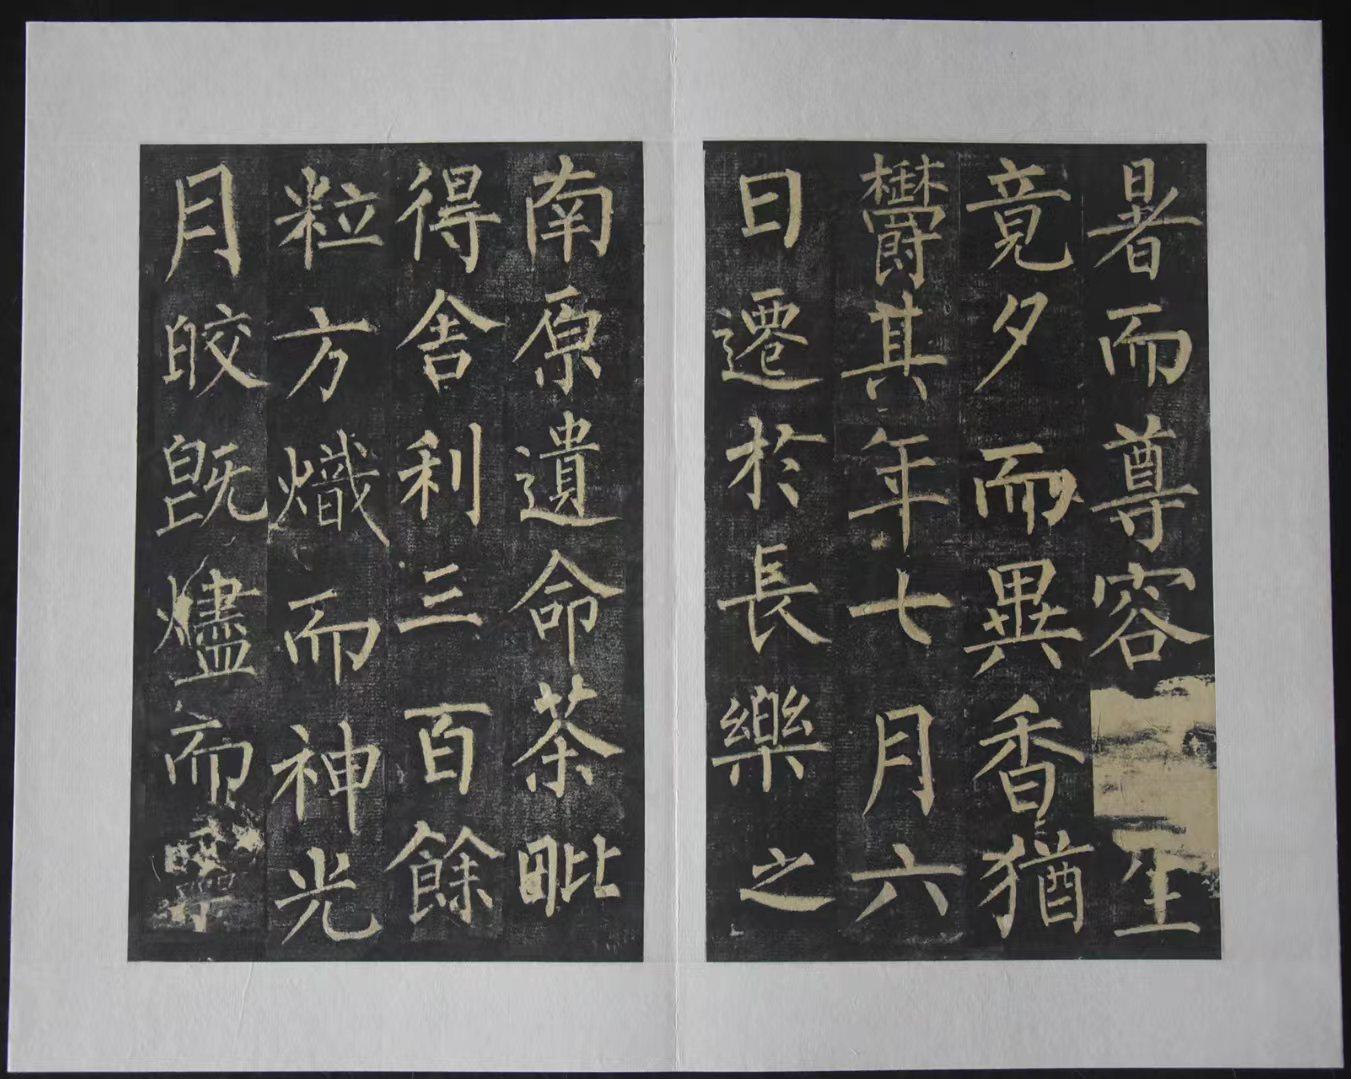 暑而尊容生
竟夕而異香猶
欝其年七月六
日遷於長樂之
南原遺命茶毗
得舍利三百餘
粒方熾而神光
月皎既燼而